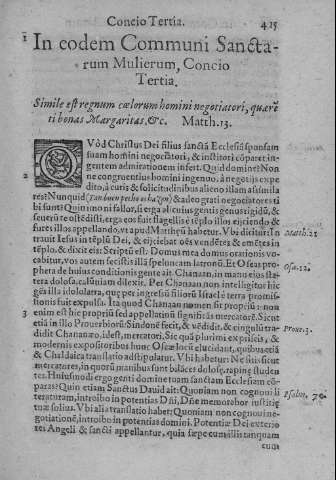 Concio Tertia. 415
1 In eodem Communi Sancta-
rum Mulierum, Concio
Tertia.
Simile est regnum cœlorum homini negotiatori, quærẽ
ti bonas Margaritas, &c. Matth. 13.
QVòd Christus Dei filius sanctã Ecclesiã sponsam
suam homini negociatori, & institori cõparet in-
gentem admirationem infert. Quid domine? Non
2 ne congruentius homini ingenuo, à negotijs expe
dito, à curis & solicitudinibus alieno illam assimila
res? Nunquid
ti sunt? Qui nimo ni fallor, si erga alicuius gentis genus rigidũ, &
seuerũ te ostẽdisti, ergo eos fuit flagellis tẽplo illos eijciendo &
fures illos appellando, vt apud Matthęũ habetur. Vbi dicitur: In Matth. 21
trauit Iesus in tẽplũ Dei, & eijciebat oẽs vendẽtes & emẽtes in
tẽplo, & dixit eis: Scriptũ est: Domus mea domus orationis vo-
cabitur, vos autem fecistis illã speluncam latronũ. Et Oseas pro- Ose. 12.
pheta de huius conditionis gente ait. Chanaan, in manu eius sta-
tera dolosa, calũniam dilexit. Per Chanaan non intelligitur hic
gẽs illa idololatra, quę per ingressũ filiorũ Israel è terra promis-
sionis fuit expulsa. Ita quod Chanaan
3 enim est hic propriũ sed appellatiuũ significãs mercatorẽ. Sicut
etiã in illo Prouerbiorũ: Sindonẽ fecit, & vẽdidit, & cingulũ tra- Prou. 3.
didit Chananæo, idest, mercatori. Sic quã plurimi ex priscis, &
modernis expositoribus hunc Oseæ locũ elucidant, quibus etiã
& Chaldaica translatio adstipulatur. Vbi habetur: Ne sitis sicut
mercatores, in quorũ manibus sunt bilãces dolosę, rapinę studen
tes. Huiusmodi ergo genti domine tuam sanctam Ecclesiam cõ-
paras? Quin etiam Sanctus Dauid ait: Quoniam non cognoui li Psalm. 70
teraturam, introibo in potentias Dñi, Dñe memorabor iustitię
tuæ solius. Vbi alia translatio habet: Quoniam non cognoui ne-
gotiationẽ, introibo in potentias domini. Potentiæ Dei exerio
res Angeli & sancti appellantur, quia sæpe cum illis tanquam
cum